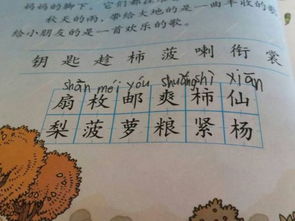 妈妈的脚下。它们都在
秋天的雨，带给大地的是一曲丰收的歌
给小朋友的是一首欢乐的歌。
钥匙趁柿菠喇衔裳
shān méi yóu shuǎng shì xiān
扇枚邮爽柿仙
梨菠萝粮紧杨